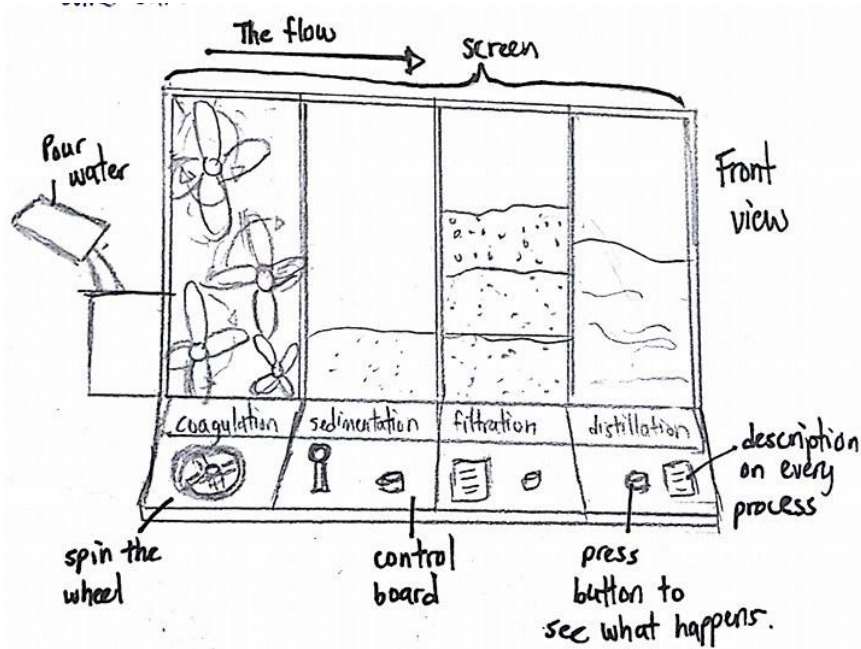 The flow
screen
Pour
water
Front
view
coagulation
sedimentation
filtration
distillation
description
on every
process
spin the
wheel
control
board
press
button to
see what happens.